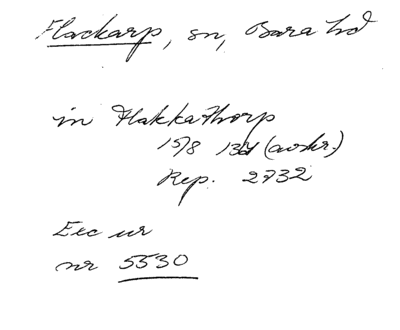 Flackarp, sn, Bara hd
in Flakkathorp
15/8 13 (avskr.)
Rep. 2732
Exc ur
nr 5530